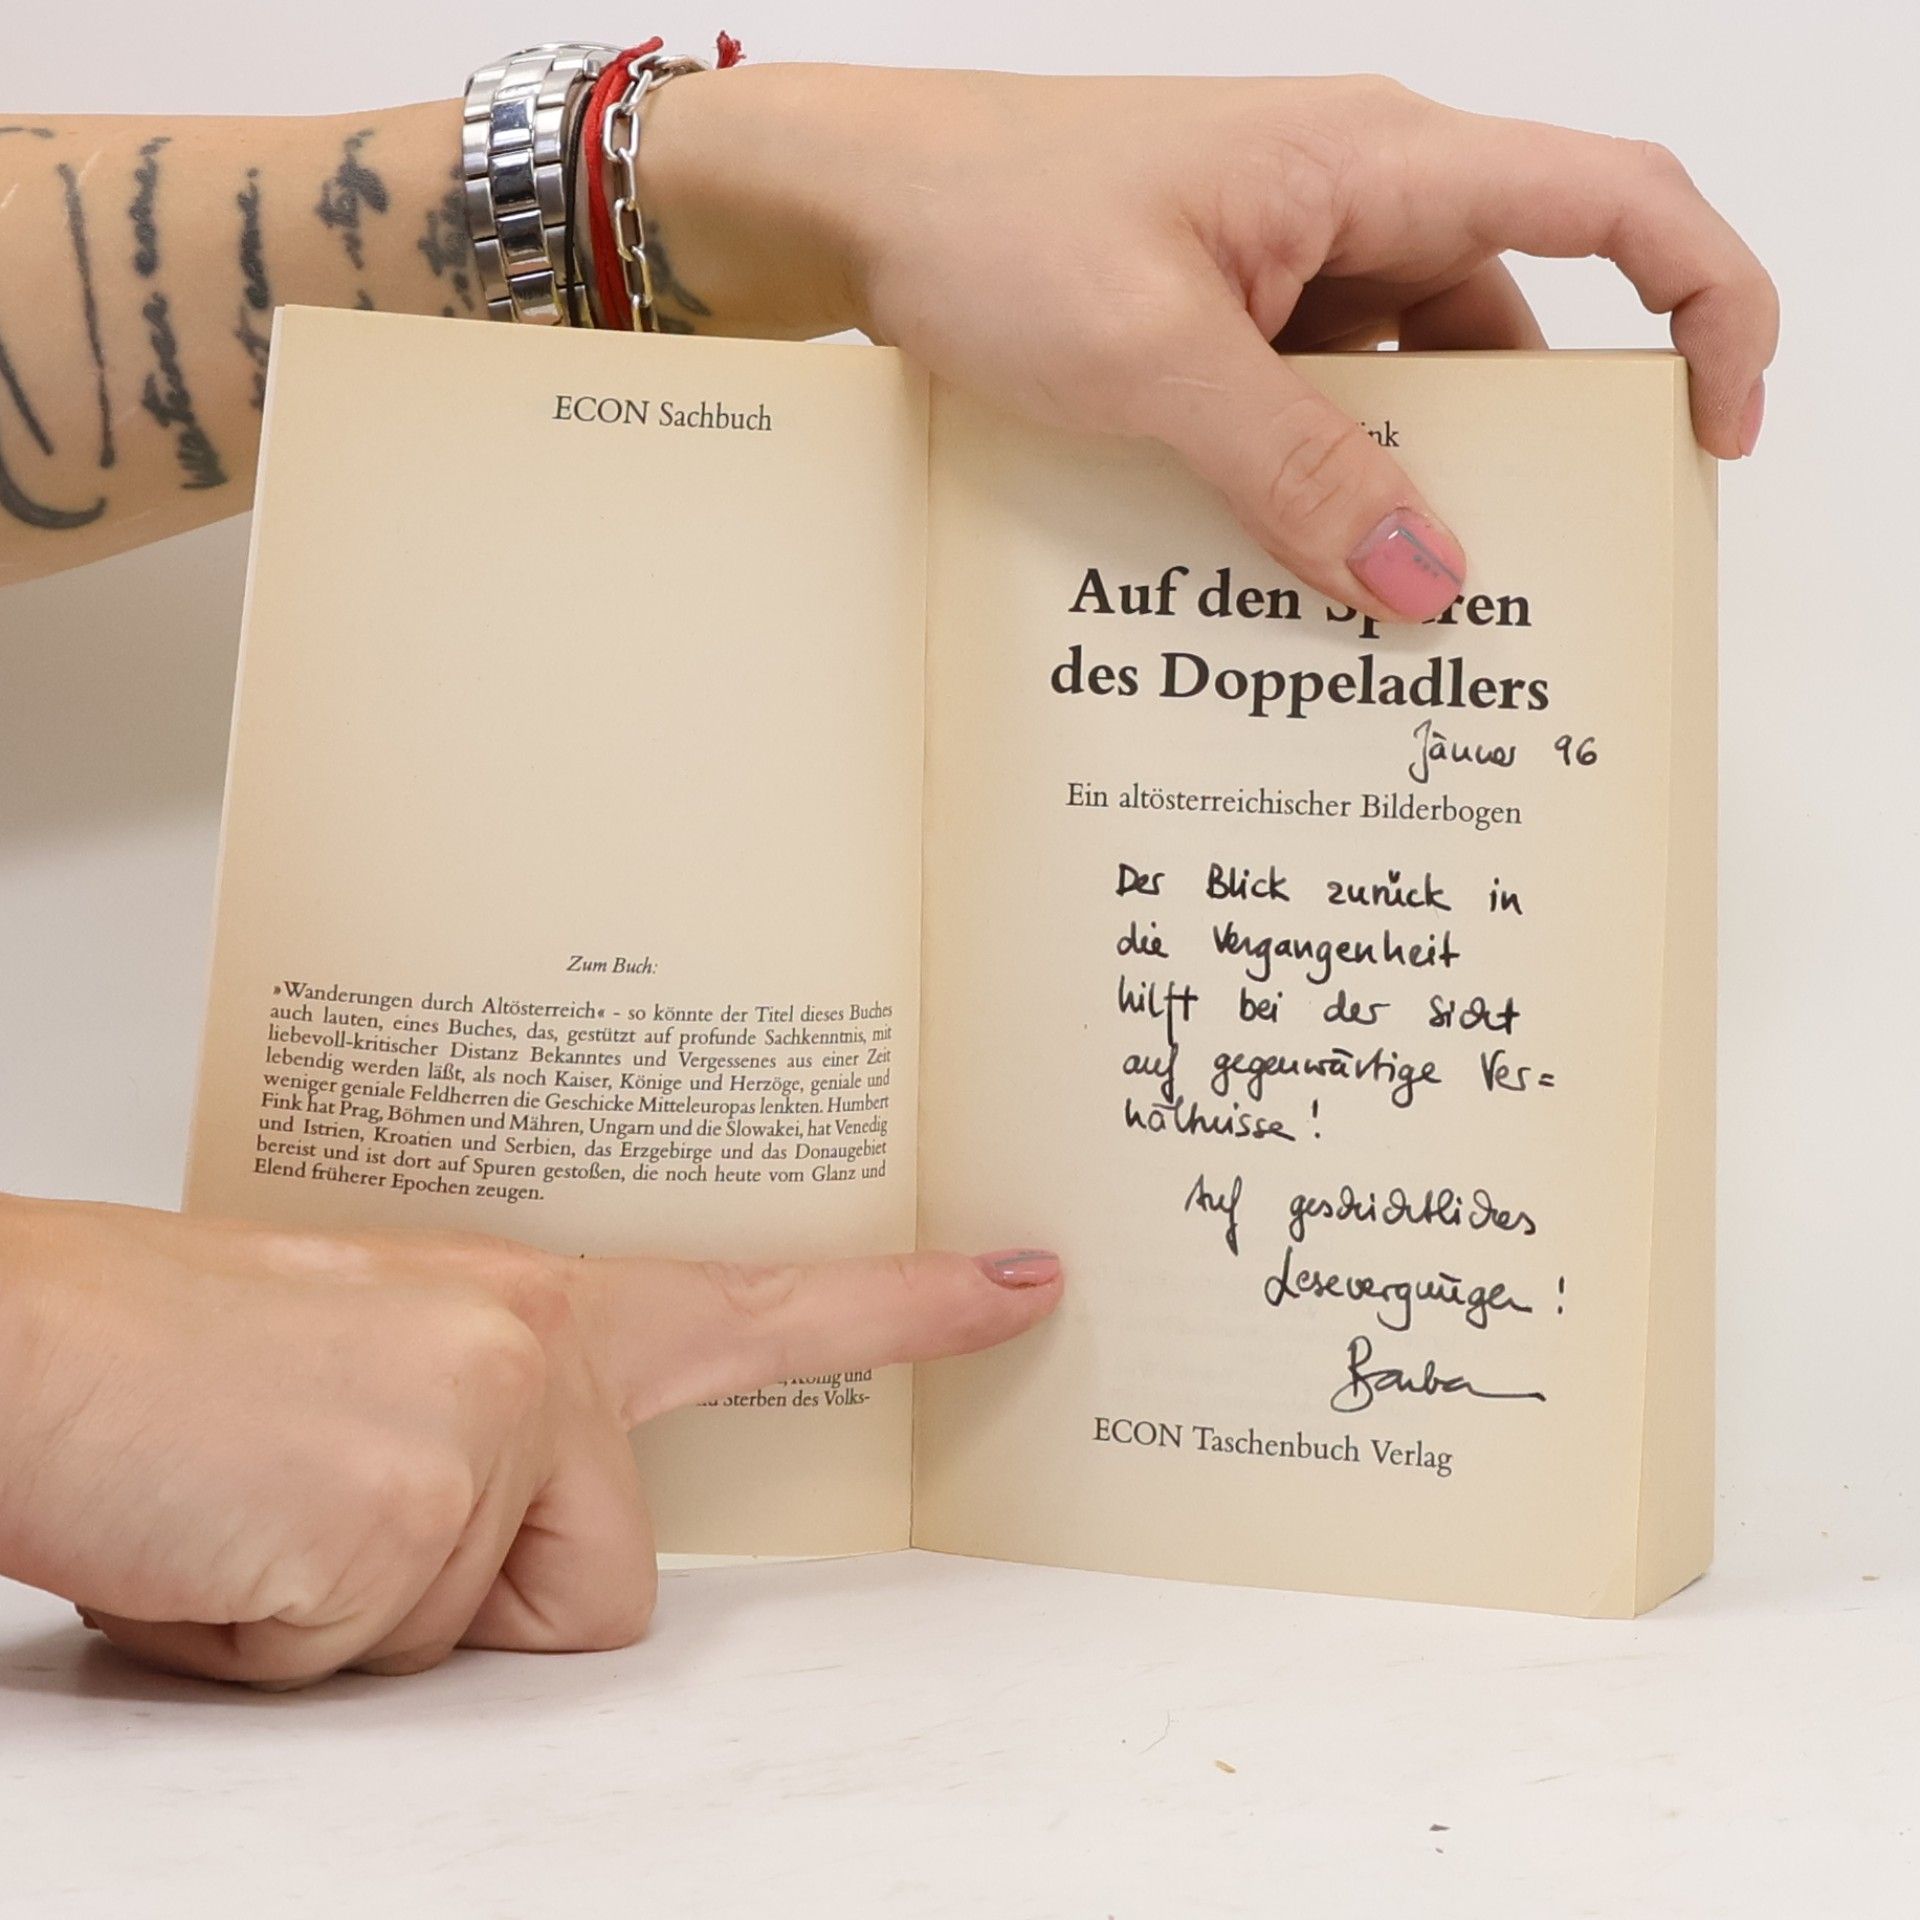 ECON Sachbuch
Zum Buch:
»Wanderungen durch Altösterreich« - so könnte der Titel dieses Buches
auch lauten, eines Buches, das, gestützt auf profunde Sachkenntnis, mit
liebevoll-kritischer Distanz Bekanntes und Vergessenes aus einer Zeit
lebendig werden läßt, als noch Kaiser, Könige und Herzöge, geniale und
weniger geniale Feldherren die Geschicke Mitteleuropas lenkten. Humbert
Fink hat Prag, Böhmen und Mähren, Ungarn und die Slowakei, hat Venedig
und Istrien, Kroatien und Serbien, das Erzgebirge und das Donaugebiet
bereist und ist dort auf Spuren gestoßen, die noch heute vom Glanz und
Elend früherer Epochen zeugen.
und
Sterben des Volks-
Auf den
des Doppeladlers
Jänner 96
Ein altösterreichischer Bilderbogen
Der Blick zurück in
die Vergangenheit
hilft bei der Sicht
auf gegenwärtige Ver=
hältnisse!
Auf geschichtliches
Lesevergnügen!
ECON Taschenbuch Verlag